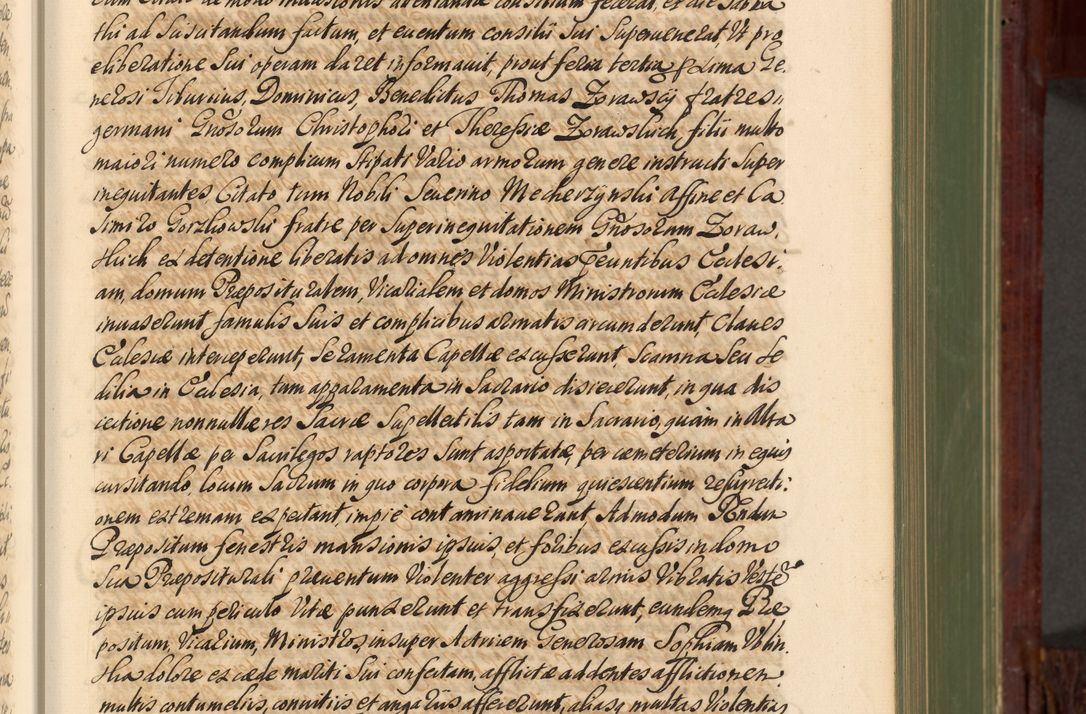 thi ad Suscitandum factum, et euentum consilii Sui Superuenerat, Vt pro
eliberatione Sui operam daret informauit, prout feria tertia pxima Ge,
nerosi Tiburtius, Dominicus, Benedictus Thomas Zorawscÿ fratres,,
germani Gnosorum Christophori et Theressiæ Zorawskich filii multo
maiori numero complicum stipati Vario armorum genere instructi Super
inequitantes Citato tum Nobili Seuerino Mecherzynski affine et Ca
simiro Gorzkowski fratre per Superinequitationem Gnosorum Zoraw,
skich ex detentione liberatis ad omnes Violentias Ecclesi
am, domum Præposituralem, Vicarialem et domos Ministrorum Ecclesiæ
inuaserunt famulis Suis et complicibus armatis circumderunt, Claues
Ecclesiæ interceperunt, Seramenta Capellæ excusserunt, Scamna Seu Se
dilia in Ecclesia, tum apparamenta in Sacrario disiecerunt, in qua dis
iectione nonnullæ res Sacræ Supellectilis tam in Sacrario, quàm in Alta
ri Capellæ per Sacrilegos raptores Sunt asportatæ, per cæmeterium in equis
cursitando, locum Sacrum in quo corpora fidelium quiescentium resurrecti:
onem extremam expectant, impiè contaminauerunt, Admodum Rndum
Præpositum fenestris mansionis ipsius, et foribus excussis in domo
Sua Præpositurali præuentum Violenter aggressi armis Vibratis Veste
ipsius cum periculo Vitæ punxerunt et transfixerunt, eundemq Præ
positum, Vicarium, Ministros, insuper Actricem Generosam Sophiam Wolin,
ska dolore ex cæde mariti Sui confectam, afflictæ addentes afflictionem
multis contumeliis, conuitiis et angariis affecerunt, aliasq multas Violentias